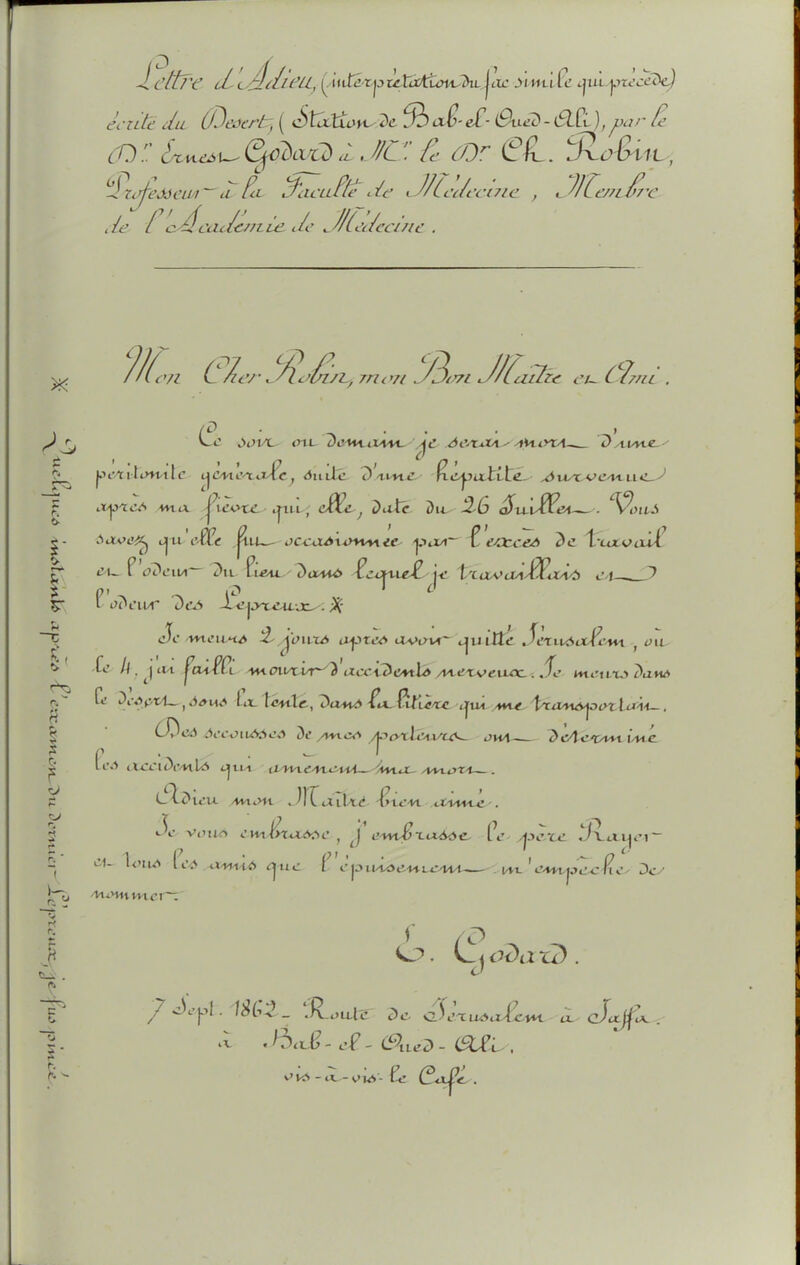 Lettre d'Adieu, (interprétation du fac simile qui précède)
écrite du (Désert, (Station de Bab-el-Oued-Ali), par le
Dr Ernest Godard à Mr le Dr Ch. Robin,
Professeur à la Faculté de Médecine, Membre
de l'Académie de Médecine.
Mon Cher Robin, mon Bon Maître et Ami.
Ce soir ou demain je serai mort D'une
péritonite généralisée, suite D'une hépatite survenue
après ma fièvre qui, elle, date Du 26 Juillet. Vous
savez qu'elle fut occasionnée par l'excès De travail
et l'odeur Du lieu Dans lequel je travaillais et
l'odeur Des Lépreux. ※
Je meurs 2 jours après avoir quitté Jérusalem, où
le 11, j'ai failli mourir D'accidents nerveux. Je meurs Dans
le Désert, sous la tente, Dans la litière qui me transportait.
Des secousses De mes porteurs ont Déterminé
les accidents qui amènent ma mort.
Adieu mon Maître bien aimé.
Je vous embrasse, j'embrasse le père Rayer
et tous les amis que l'épuisement m'empêche De
nommer.
E. Godard.
7 Sept. 1862 _ Route De Jérusalem à Jaffa.
à Bab-el-Oued-Ali,
vis-à-vis le Café.